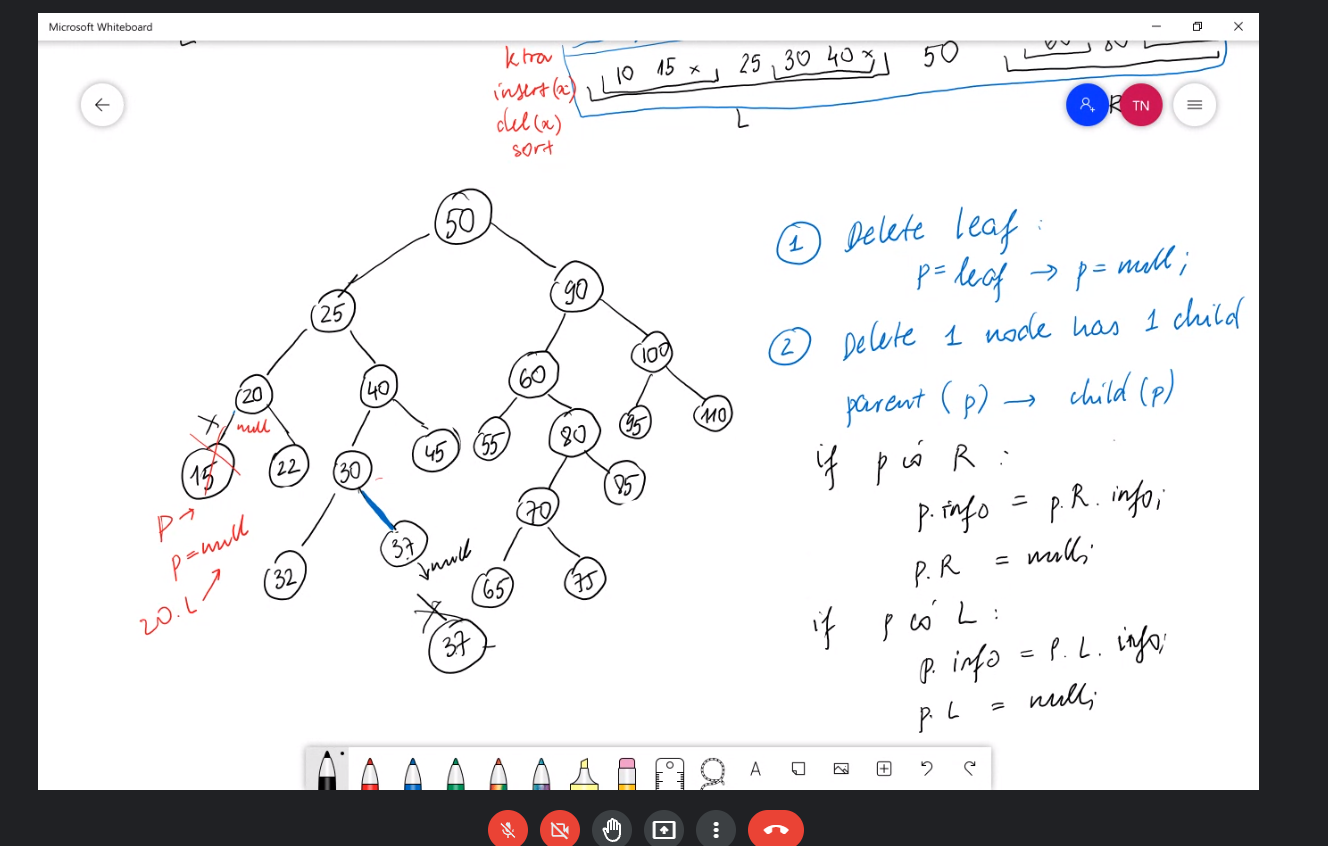 Microsoft Whiteboard
ktra
insert(x)
del(x)
sort
10 15 x 25 30 40 x 50
L
R
TN
50
25
90
20
40
60
100
x
null
15
22
30
45
55
80
95
110
37
85
70
32
null
65
75
37
P →
p=null
20.L
① Delete leaf :
p = leaf → p = null;
② Delete 1 node has 1 child
parent (p) → child (p)
if p có R :
p.info = p.R.info;
p.R = null;
if p có L :
p.info = p.L.info;
p.L = null;
A